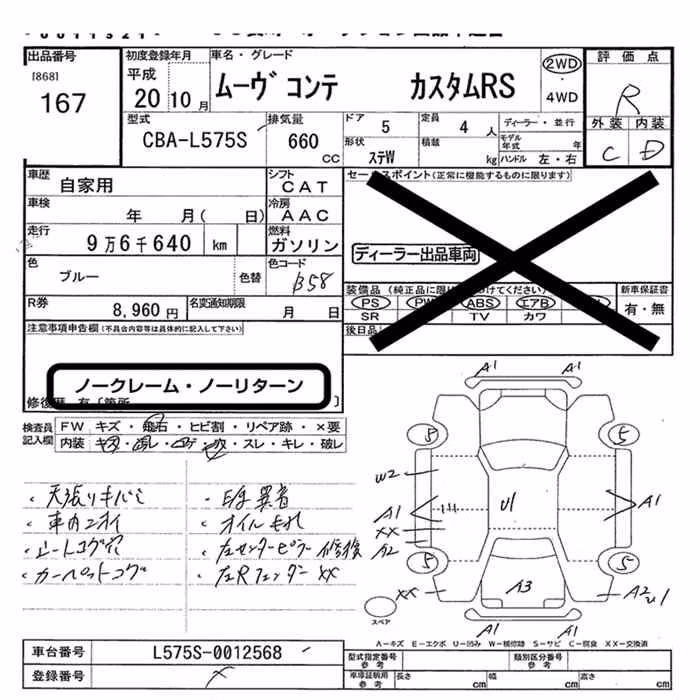 出品番号
[868]
167
初度登録年月
平成
20 10 月
車名・グレード
ムーヴ コンテ カスタムRS
2WD
・
4WD
評価点
R
外装 内装
C D
型式
CBA-L575S
排気量
660
CC
ドア
5
定員
4 人
ディーラー・並行
モデル年式 年
形状
ステW
積載
kg
ハンドル 左・右
車歴
自家用
シフト
CAT
車検
年 月( 日)
冷房
AAC
走行
9万6千640 km
燃料
ガソリン
色
ブルー
色替
色コード
B58
R券
8,960 円
名変通知期限
月 日
セールスポイント(正常に機能するものに限ります)
ディーラー出品車両
装備品
PS
ABS
エアB
SR
TV
カワ
新車保証書
有・無
後日品
注意事項申告欄(不具合内容等は具体的に記入して下さい)
ノークレーム・ノーリターン
検査員記入欄
FW キズ・飛石・ヒビ割・リペア跡・×要
内装
スレ・キレ・破レ
・天張りキバミ
・車内ニオイ
・シートコゲ穴
・カーペットコゲ
・E/g異音
・オイルもれ
・左センターピラー修復
・左Rフェンダー XX
A1 A1
5 5
W2
A1
XX
A2
U1
A1
5 5
XX
A3
A2 U1
スペア
A1 A1
A-キズ E-エクボ U-凹み W-補修跡 S-サビ C-腐食 XX-交換済
車台番号
L575S-0012568
登録番号
型式指定番号
参考
類別区分番号
参考
車庫証明用
参考
長さ cm
幅 cm
高さ cm